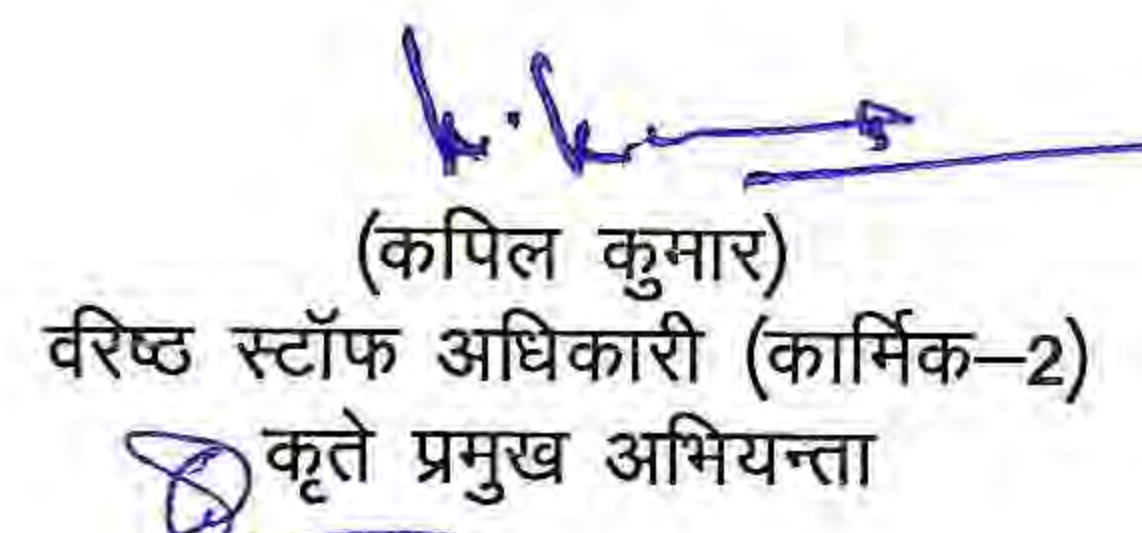 (कपिल कुमार)
वरिष्ठ स्टॉफ अधिकारी (कार्मिक–2)
कृते प्रमुख अभियन्ता